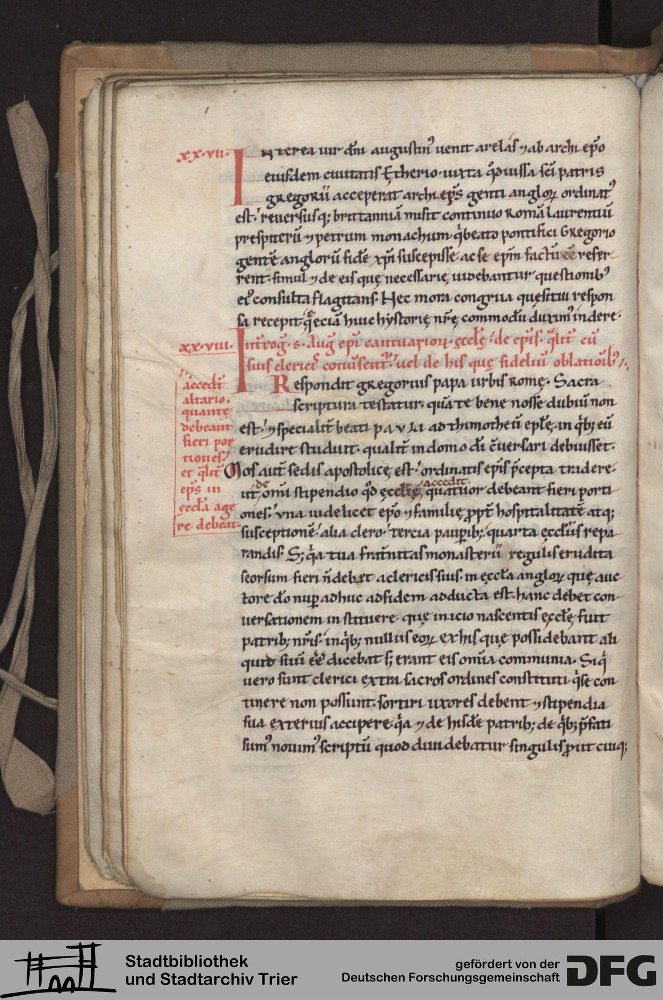 xx.vii.
INterea uir dñi augustin᷒ uenit arelas ⁊ ab archi ep̄o
eiusdem ciuitatis Etherio. iuxta qđ iussa sc̄i patris
gregorii acceperat archi ep̄s genti angloꝝ ordinat᷒
est. reuersusq; brittanniā misit continuo romā laurentiū
presbiterū ⁊ petrum monachum. q̇ beato pontifici Gregorio
gentē anglorū fidē xp̄i suscepisse. ac se ep̄m factū eē refer
rent. simul ⁊ de eis quę necessarię uidebantur questionib᷒
ei᷒ consulta flagitans. Hec mora congrua quesitui respon
sa recepit. q̄ &iā huic hystorię nr̄ę commodū duxim᷒ indere.
xx.viii.
Int̄rog̃. s. Aug̃ ep̄i cantuarioꝝ ęccłę. de ep̄is. qłit̃ cū
suis clericis conuersent᷑. uel de his quę fideliū oblatiōib᷒
accedt̄
altario.
quantę
debeant
fieri por
tiones.
et qłit̃
ep̄s in
ęccła age
re debeat.
Respondit gregorius papa urbis romę. Sacra
scriptura testatur. quā te bene nosse dubiū non
est. ⁊ specialit̃ beati pauli ad thimotheū epłę. in q̇b; eū
erudire studuit. qualit̃ in domo dī c̄uersari debuisset.
Mos aut̄ sedis apostolicę est. ordinatis ep̄is p̄cepta tradere.
ut de om̄i stipendio qđ ęccłię accedit quatuor debeant fieri porti
ones. vna uidelicet ep̄o ⁊ familię ꝓpt̃ hospitalitatē atq;
susceptionē. alia clero. tercia paupib;. quarta ęccłiis repa
randis. S; q̇a tua frat̃nitas monasterii regulis erudita
seorsum fieri n̄ debet a clericis suis. in ęccła angloꝝ quę auc
tore dō nup adhuc ad fidem adducta est. hanc debet con
uersationem instituere. quę inicio nascentis ęccłę. fuit
patrib; nr̄is. in q̇b; nullus eoꝝ ex his quę possidebant ali
quid suū eē dicebat. s; erant eis om̄ia communia. Si q̇
uero sunt clerici extra sacros ordines constituti. q̇ se con
tinere non possunt. sortiri uxores debent. ⁊ stipendia
sua exterius accipere. q̇a ⁊ de hisdē patrib; de q̇b; p̄fati
sum᷒ nouim᷒ scriptū quod diuidebatur singulis ꝓut cuiq;
Stadtbibliothek
und Stadtarchiv Trier
gefördert von der
Deutschen Forschungsgemeinschaft
DFG